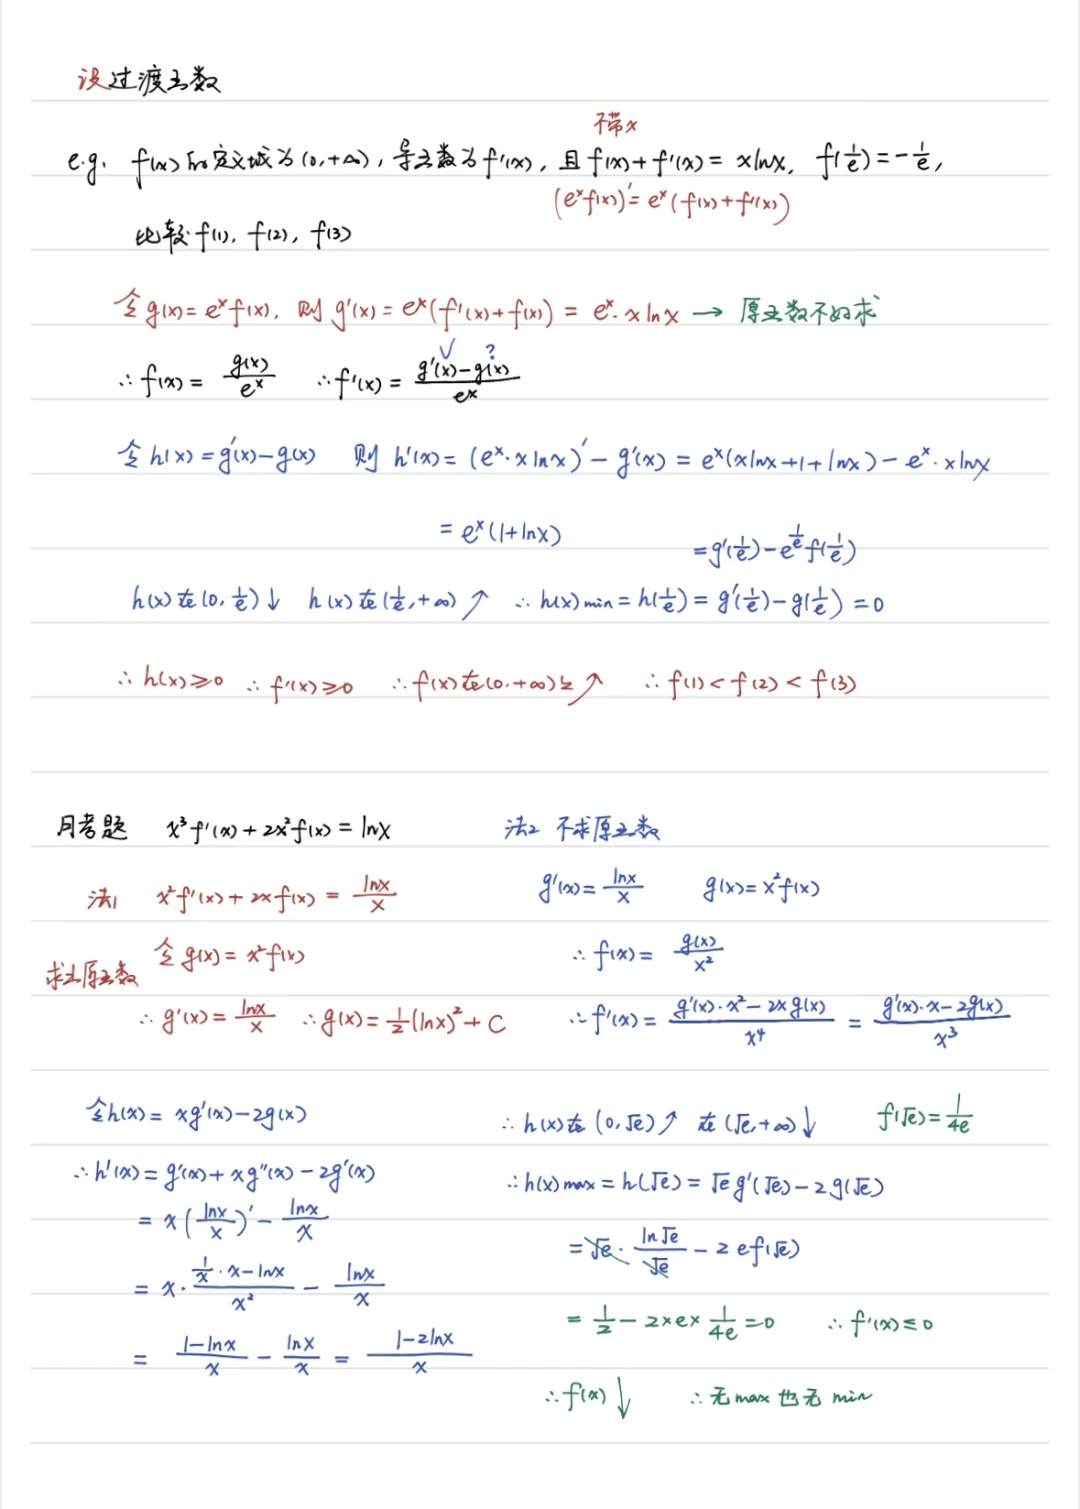 设过渡函数
不带x
e.g. f(x)的定义域为(0,+∞),导函数为f'(x),且f(x)+f'(x)=xlnx, f(1/e)=-1/e,
(e^x f(x))'=e^x(f(x)+f'(x))
比较f(1), f(2), f(3)
令g(x)=e^x f(x), 则g'(x)=e^x(f'(x)+f(x))=e^x·xlnx → 原函数不好求
√ ?
∴f(x)=g(x)/e^x ∴f'(x)=(g'(x)-g(x))/e^x
令h(x)=g'(x)-g(x) 则h'(x)=(e^x·xlnx)'-g'(x)=e^x(xlnx+1+lnx)-e^x·xlnx
=e^x(1+lnx)
=g'(1/e)-e^(1/e)f(1/e)
h(x)在(0,1/e)↓ h(x)在(1/e,+∞)↗ ∴h(x)min=h(1/e)=g'(1/e)-g(1/e)=0
∴h(x)≥0 ∴f'(x)≥0 ∴f(x)在(0,+∞)上↗ ∴f(1)<f(2)<f(3)
月考题 x³f'(x)+2x²f(x)=lnx
法1 x²f'(x)+2xf(x)=lnx/x
求出原函数
令g(x)=x²f(x)
∴g'(x)=lnx/x ∴g(x)=1/2(lnx)²+C
法2 不求原函数
g'(x)=lnx/x g(x)=x²f(x)
∴f(x)=g(x)/x²
∴f'(x)=(g'(x)·x²-2xg(x))/x⁴=(g'(x)·x-2g(x))/x³
令h(x)=xg'(x)-2g(x)
∴h'(x)=g'(x)+xg''(x)-2g'(x)
=x(lnx/x)'-lnx/x
=x·(1/x·x-lnx)/x²-lnx/x
=(1-lnx)/x-lnx/x=(1-2lnx)/x
∴h(x)在(0,√e)↗ 在(√e,+∞)↓ f(√e)=1/4e
∴h(x)max=h(√e)=√e g'(√e)-2g(√e)
=√e·ln√e/√e-2ef(√e)
=1/2-2×e×1/4e=0 ∴f'(x)≤0
∴f(x)↓ ∴无max也无min